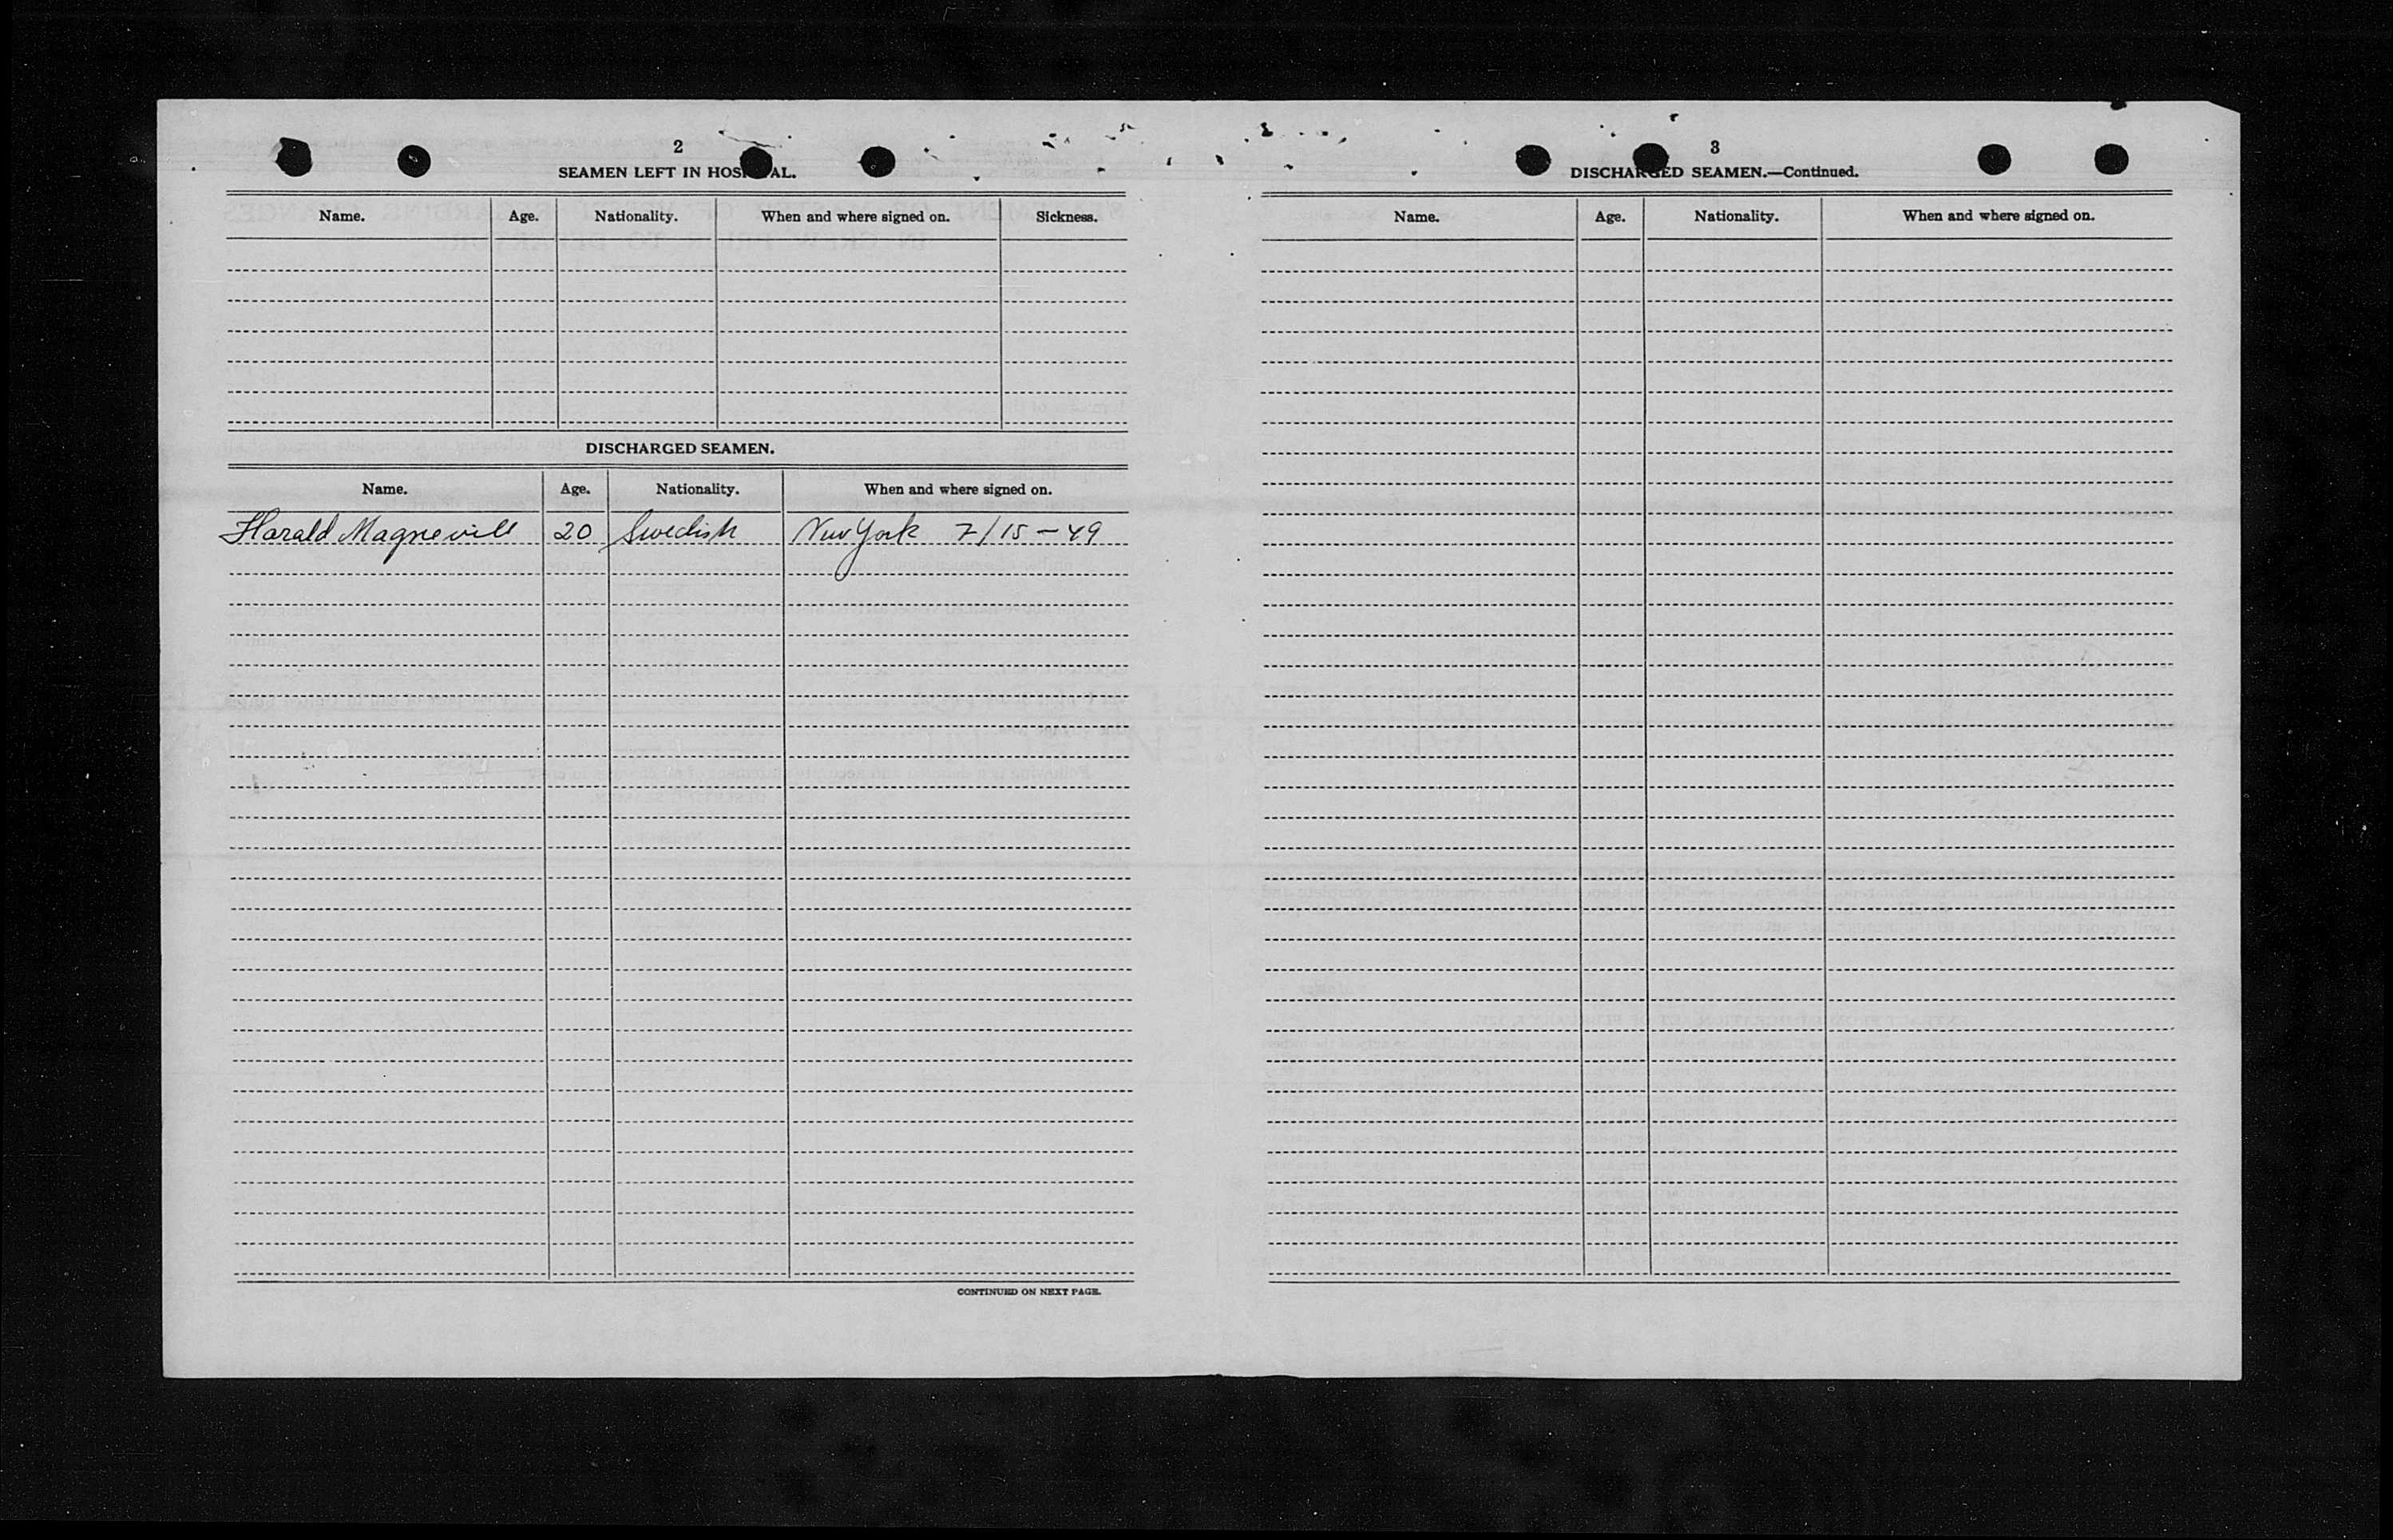 2
SEAMEN LEFT IN HOSPITAL.
Name. Age. Nationality. When and where signed on. Sickness.
DISCHARGED SEAMEN.
Name. Age. Nationality. When and where signed on.
Harald Magnevill 20 Swedish New York 7/15-49
CONTINUED ON NEXT PAGE.
3
DISCHARGED SEAMEN.—Continued.
Name. Age. Nationality. When and where signed on.